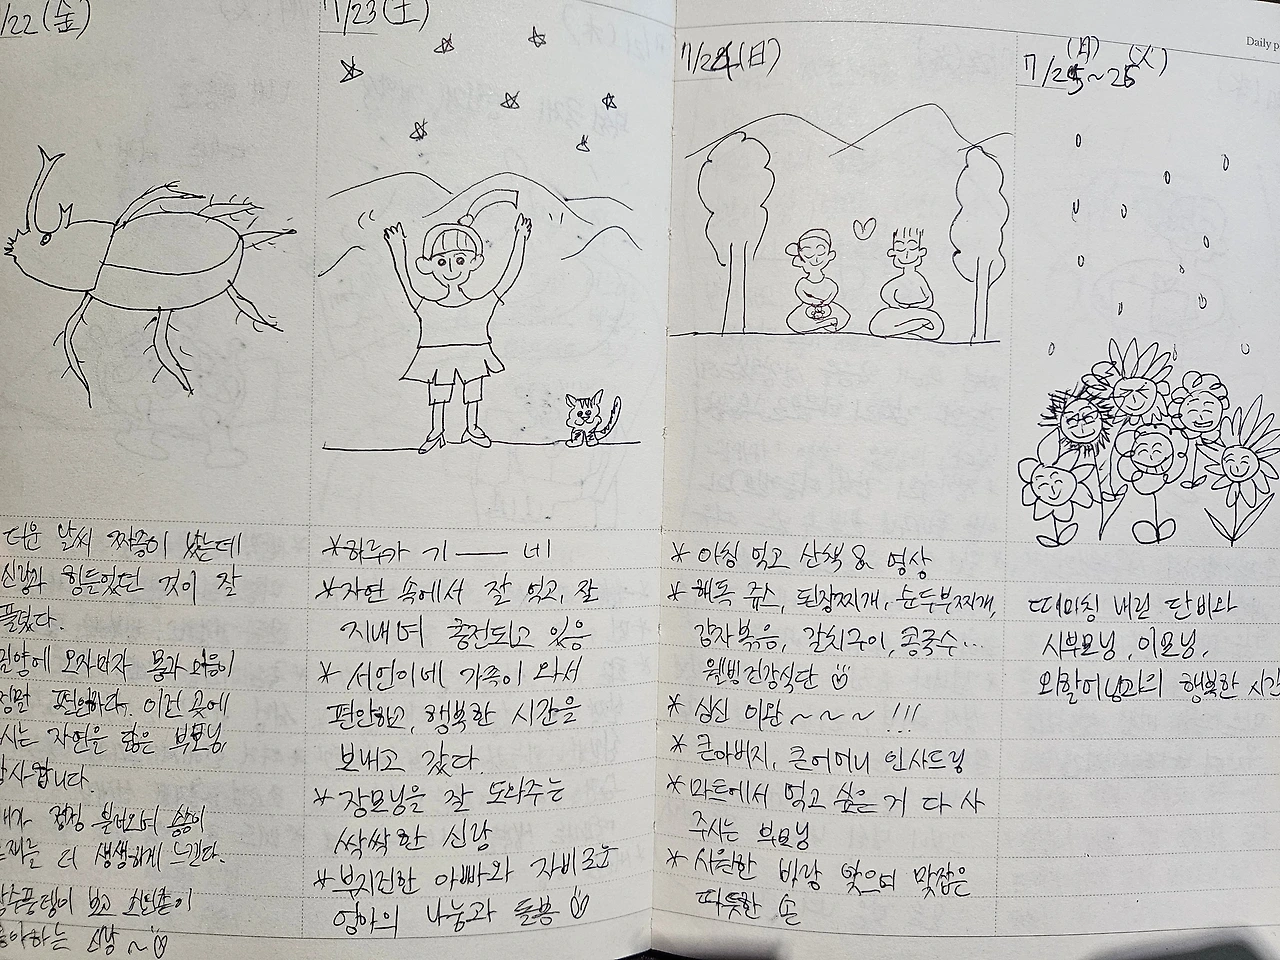 /22(金)
더운 날씨 짜증이 났는데
신랑과 힘들었던 것이 잘
풀렸다.
밀양에 오자마자 몸과 마음이
정말 편안하다. 이런 곳에
시는 자연을 닮은 부모님,
감사합니다.
배가 점점 불러오며 송송이
존재를 더 생생하게 느낀다.
장수풍뎅이 보고
좋아하는 신랑~
7/23(土)
*하루가 기 ── 네
*자연 속에서 잘 먹고, 잘
지내며 충전되고 있음
* 서인이네 가족이 와서
편안하고, 행복한 시간을
보내고 갔다.
* 장모님을 잘 도와주는
싹싹한 신랑
*부지런한 아빠와 자비로운
엄마의 나눔과 돌봄
7/24(日)
* 아침 먹고 산책 & 명상
* 해독 쥬스, 된장찌개, 순두부찌개,
감자볶음, 갈치구이, 콩국수...
웰빙건강식단
* 심신 이완~~~ !!!
* 큰아버지, 큰어머니 인사드림
* 마트에서 먹고 싶은 거 다 사
주시는 부모님
* 시원한 바람 맞으며 맞잡은
따뜻한 손
Daily p
(月) (火)
7/25~26
때마침 내린 단비와
시부모님, 이모님,
외할머님과의 행복한 시간